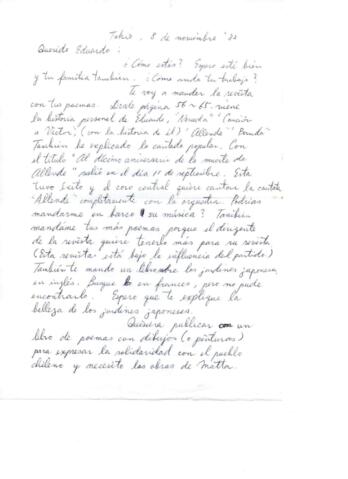 Tokio, 8 de noviembre '83
Querido Eduardo:
¿Cómo estás? Espero esté bien
y tu familia también. ¿Cómo anda tu trabajo?
Te voy a mandar la revista
con tus poemas. Desde página 56~65. viene
la historia personal de Eduardo, "Neruda" "Canción
a Víctor", (con la historia de él) "Allende"
También he explicado la cantata popular. Con
el título "Al décimo aniversario de la muerte de
Allende" salió en el día 11 de septiembre. Esta
tuvo éxito y el coro central quiere cantar la cantata
"Allende" completamente con la orquestra. Podrías
mandarme en barco su música? También
mandame tus más poemas porque el dirigente
de la revista quiere tenerlos más para su revista
(Esta revista está bajo la influencia del partido)
También te mando un libro sobre los jardines japoneses
en inglés. Busqué en francés, pero no pude
encontrarlo. Espero que te explique la
belleza de los jardines japoneses.
Quisiera publicar un
libro de poemas con dibujos (o pinturas)
para expresar la solidaridad con el pueblo
chileno y necesito las obras de Matta.